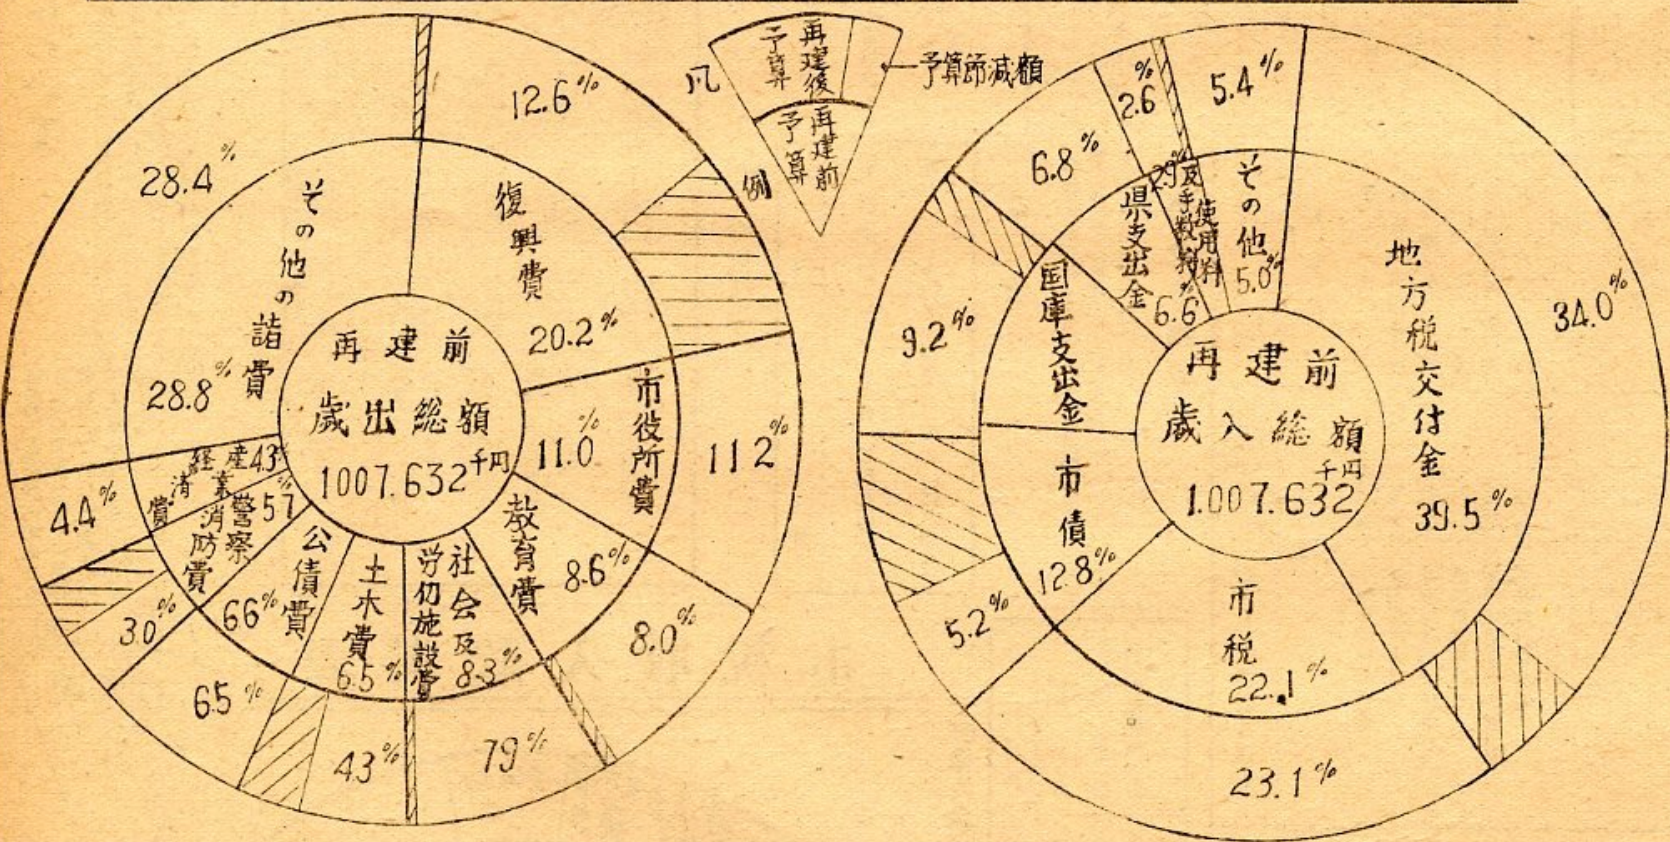 凡例
再建後
予算
再建前
予算
予算節減額
再建前
歳出総額
1007.632千円
復興費
20.2%
12.6%
市役所費
11.0%
112%
教育費
8.6%
8.0%
社会及
労仂施設費
8.3%
79%
土木費
6.5%
43%
公債費
66%
65%
警察
消防費
57%
30%
産業
経済費
43%
4.4%
その他の諸費
28.8%
28.4%
再建前
歳入総額
1.007.632千円
地方税交付金
39.5%
34.0%
市税
22.1%
23.1%
市債
12.8%
5.2%
国庫支出金
9.2%
県支出金
6.6%
6.8%
使用料
及手数料
29%
2.6%
その他
5.0%
5.4%